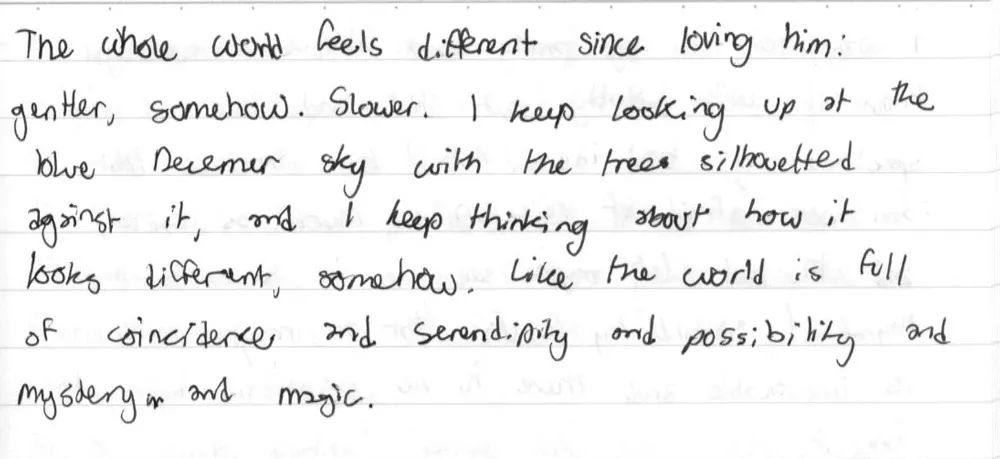 The whole world feels different since loving him:
gentler, somehow. Slower. I keep looking up at the
blue Decemer sky with the trees silhouetted
against it, and I keep thinking about how it
looks different, somehow. Like the world is full
of coincidence and serendipity and possibility and
mystery and magic.